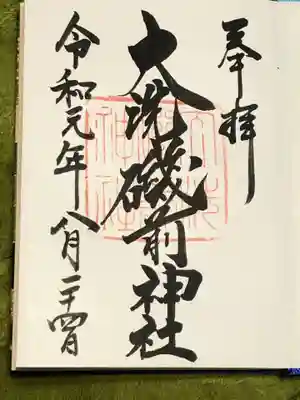 奉拝
大洗磯前神社
令和元年八月二十四日